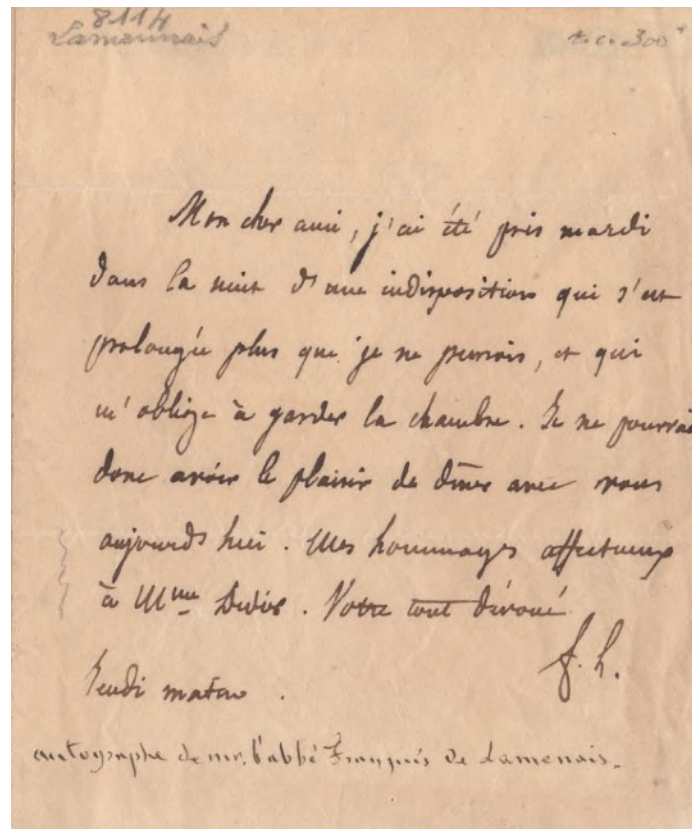 8114
Lamennais
t.c. 300
Mon cher ami, j'ai été pris mardi
dans la nuit d'une indisposition qui s'est
prolongée plus que je ne pensais, et qui
m'oblige à garder la chambre. Je ne pourrai
donc avoir le plaisir de dîner avec vous
aujourd'hui. Mes hommages affectueux
à Mme Votre tout dévoué
F. L.
Jeudi matin.
autographe de mr. l'abbé François de Lamenais.